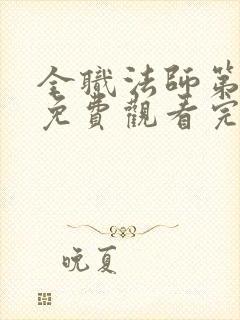 全職法師第
免費觀看完
晚夏